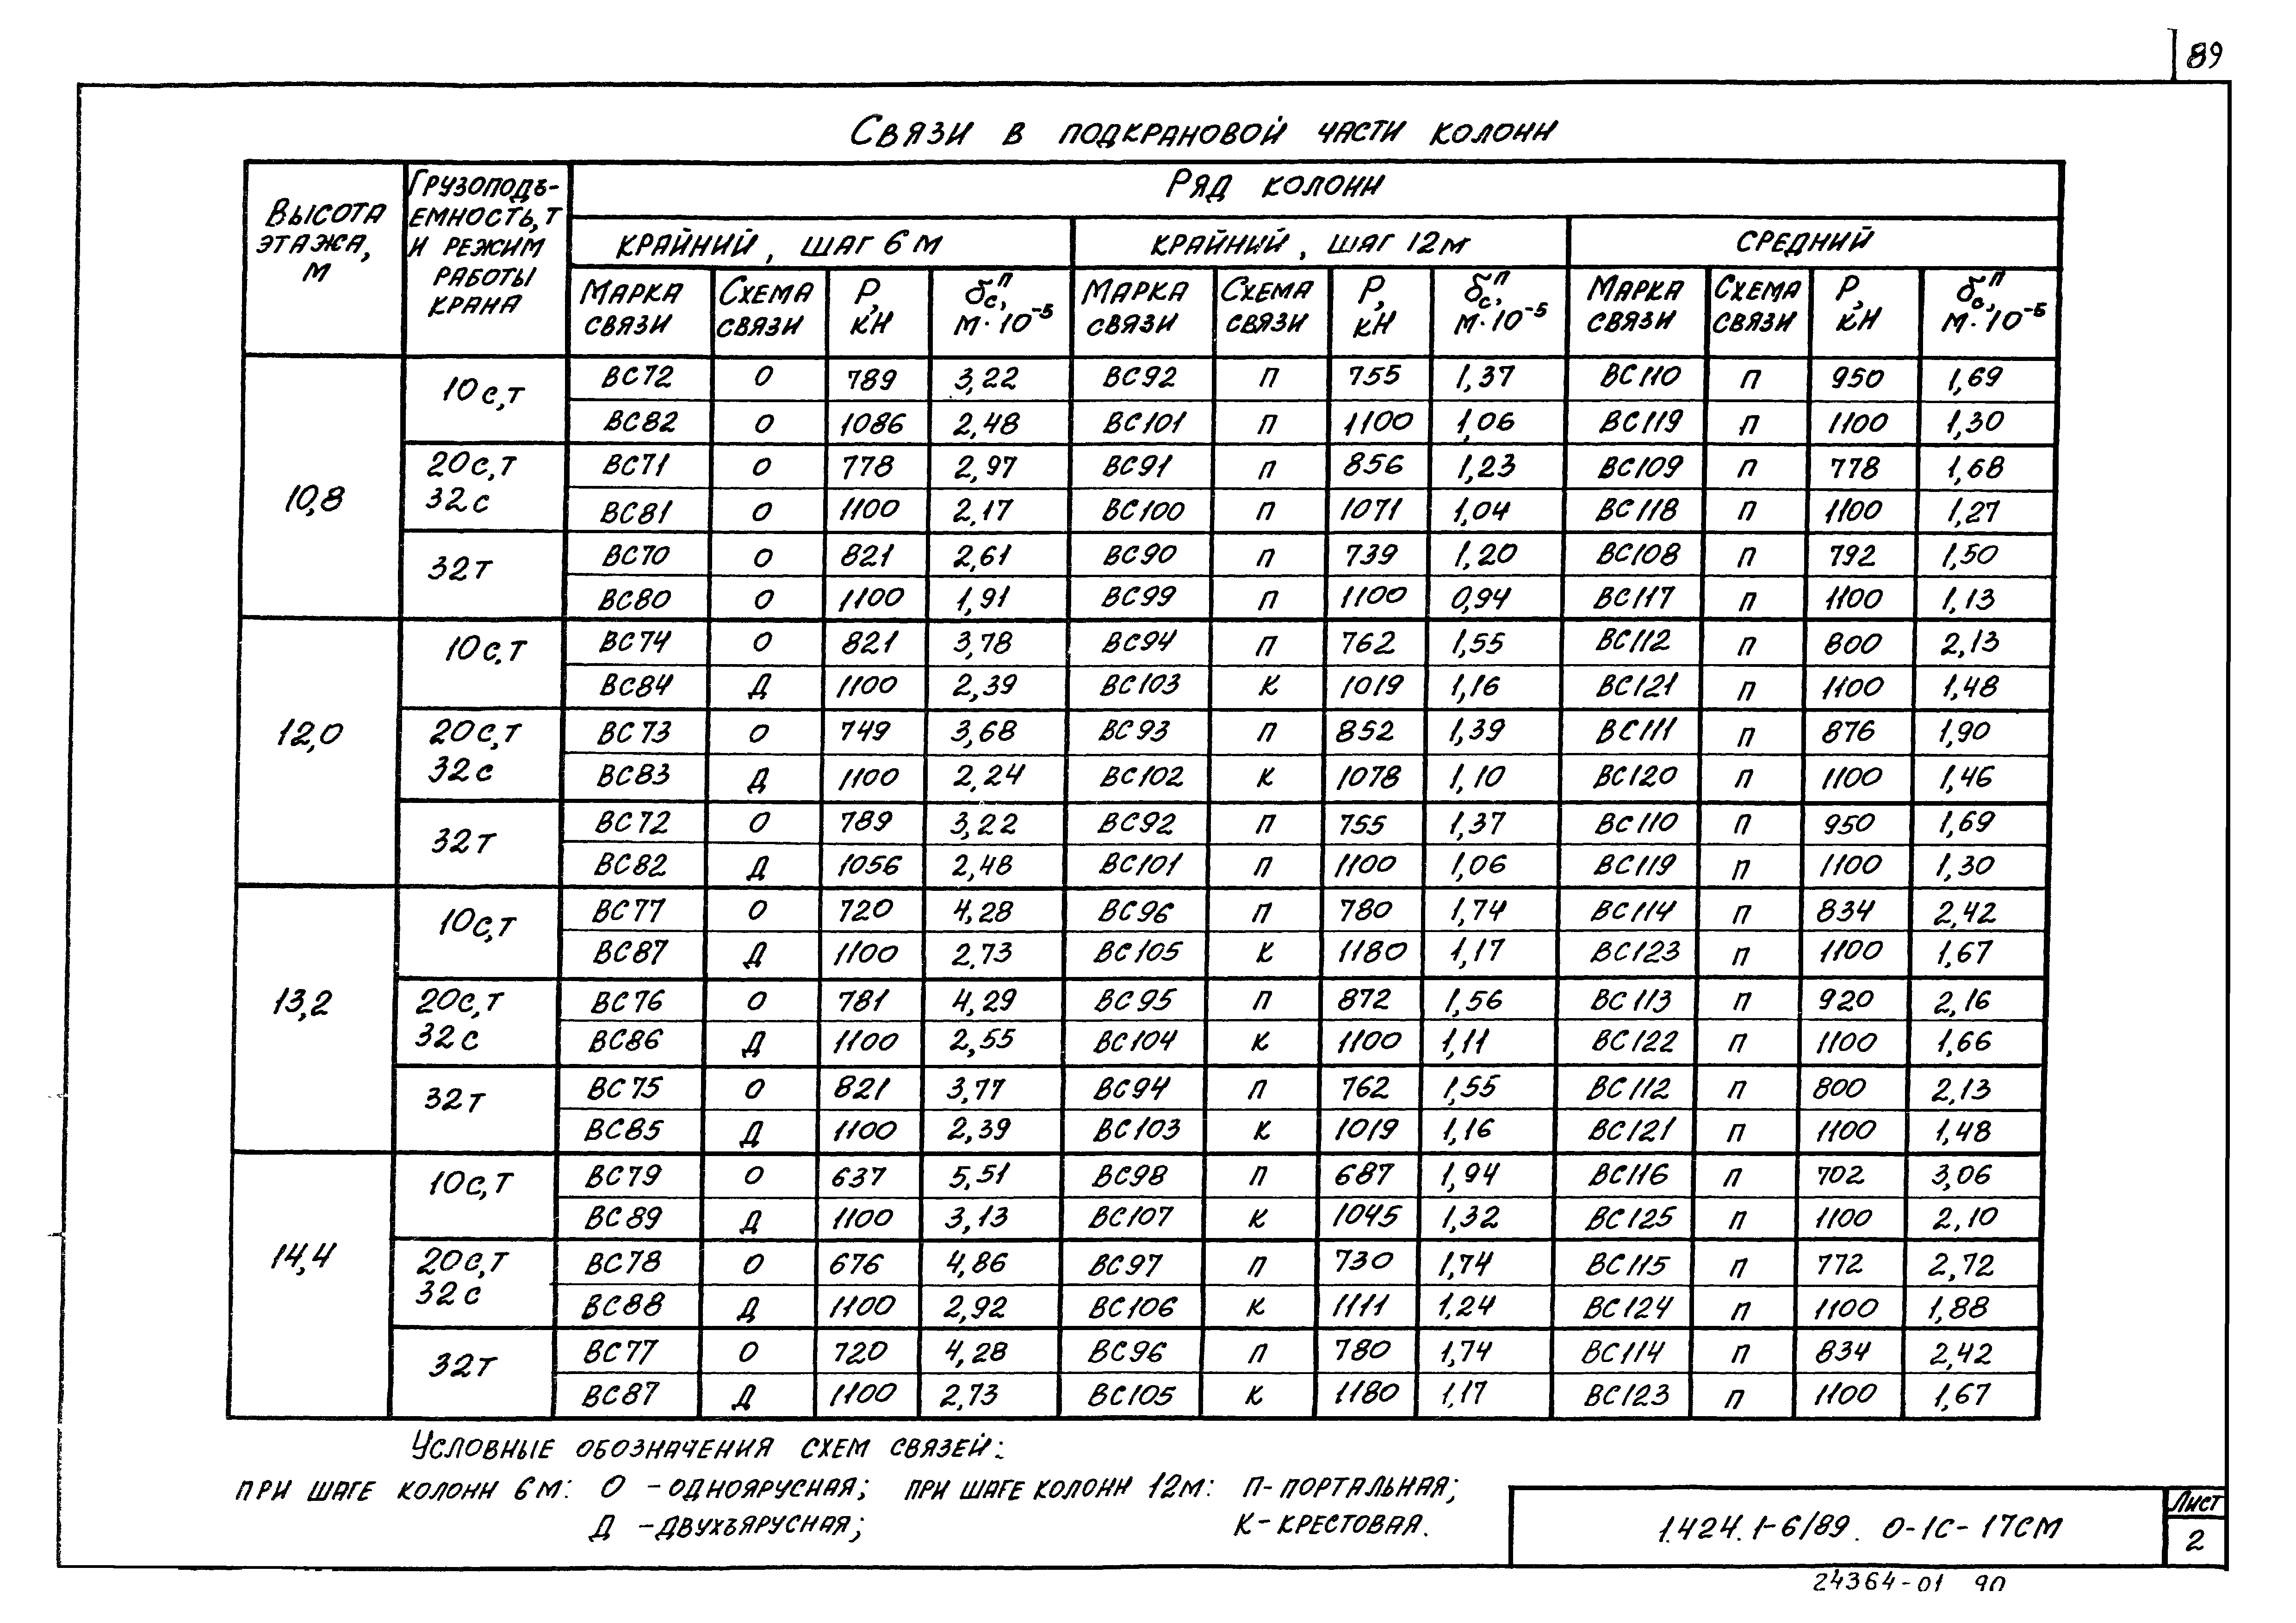 89
Связи в подкрановой части колонн
Высота этажа, м
Грузоподъ-емность, т и режим работы крана
Ряд колонн
крайний, шаг 6 м
крайний, шаг 12м
средний
Марка связи Схема связи P, кН δсп, м·10⁻⁵ Марка связи Схема связи P, кН δсп, м·10⁻⁵ Марка связи Схема связи P, кН δсп, м·10⁻⁵
10,8
10с,т
ВС72 О 789 3,22 ВС92 П 755 1,37 ВС110 П 950 1,69
ВС82 О 1086 2,48 ВС101 П 1100 1,06 ВС119 П 1100 1,30
20с,т
32с
ВС71 О 778 2,97 ВС91 П 856 1,23 ВС109 П 778 1,68
ВС81 О 1100 2,17 ВС100 П 1071 1,04 ВС118 П 1100 1,27
32т
ВС70 О 821 2,61 ВС90 П 739 1,20 ВС108 П 792 1,50
ВС80 О 1100 1,91 ВС99 П 1100 0,94 ВС117 П 1100 1,13
12,0
10с,т
ВС74 О 821 3,78 ВС94 П 762 1,55 ВС112 П 800 2,13
ВС84 Д 1100 2,39 ВС103 К 1019 1,16 ВС121 П 1100 1,48
20с,т
32с
ВС73 О 749 3,68 ВС93 П 852 1,39 ВС111 П 876 1,90
ВС83 Д 1100 2,24 ВС102 К 1078 1,10 ВС120 П 1100 1,46
32т
ВС72 О 789 3,22 ВС92 П 755 1,37 ВС110 П 950 1,69
ВС82 Д 1056 2,48 ВС101 П 1100 1,06 ВС119 П 1100 1,30
13,2
10с,т
ВС77 О 720 4,28 ВС96 П 780 1,74 ВС114 П 834 2,42
ВС87 Д 1100 2,73 ВС105 К 1180 1,17 ВС123 П 1100 1,67
20с,т
32с
ВС76 О 781 4,29 ВС95 П 872 1,56 ВС113 П 920 2,16
ВС86 Д 1100 2,55 ВС104 К 1100 1,11 ВС122 П 1100 1,66
32т
ВС75 О 821 3,77 ВС94 П 762 1,55 ВС112 П 800 2,13
ВС85 Д 1100 2,39 ВС103 К 1019 1,16 ВС121 П 1100 1,48
14,4
10с,т
ВС79 О 637 5,51 ВС98 П 687 1,94 ВС116 П 702 3,06
ВС89 Д 1100 3,13 ВС107 К 1045 1,32 ВС125 П 1100 2,10
20с,т
32с
ВС78 О 676 4,86 ВС97 П 730 1,74 ВС115 П 772 2,72
ВС88 Д 1100 2,92 ВС106 К 1111 1,24 ВС124 П 1100 1,88
32т
ВС77 О 720 4,28 ВС96 П 780 1,74 ВС114 П 834 2,42
ВС87 Д 1100 2,73 ВС105 К 1180 1,17 ВС123 П 1100 1,67
Условные обозначения схем связей:
при шаге колонн 6м: О -одноярусная; при шаге колонн 12м: П-портальная;
Д -двухъярусная; К-крестовая.
1.424.1-6/89. 0-1С-17СМ
Лист
2
24364-01 90